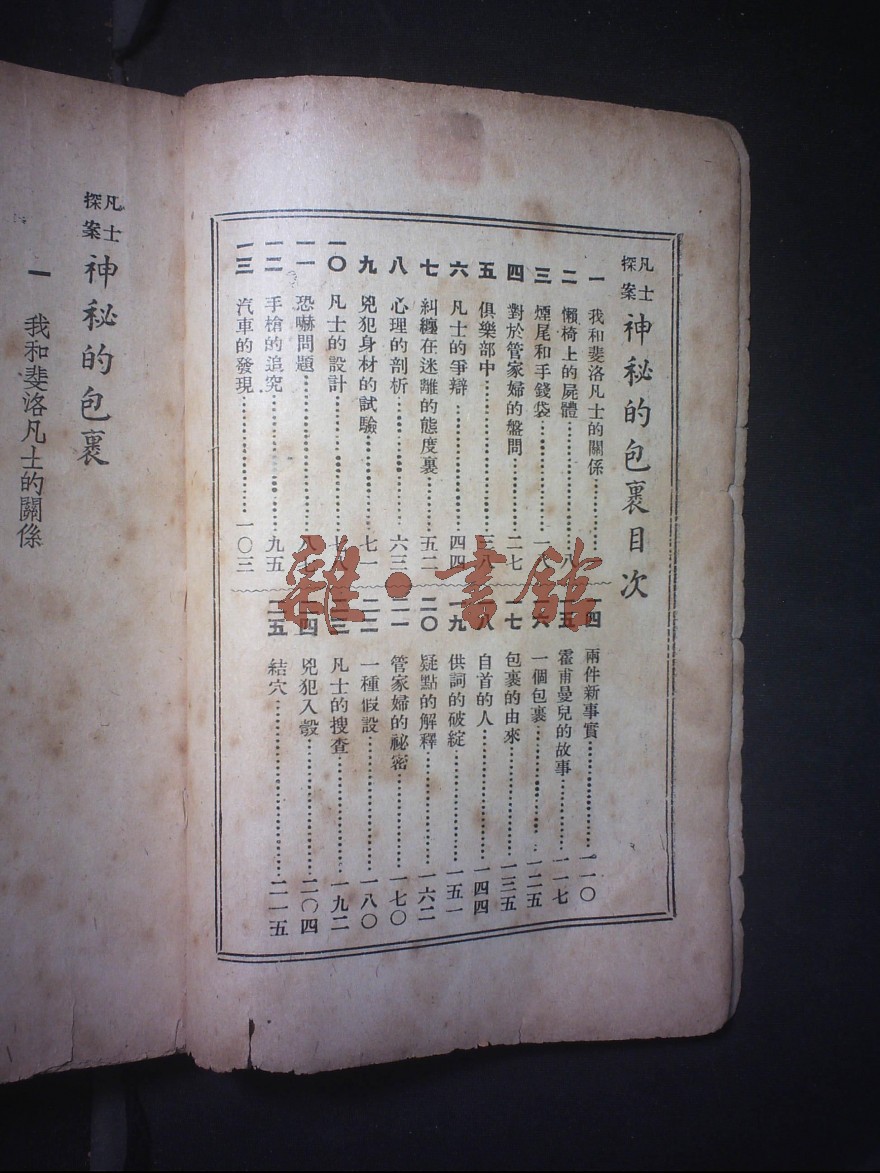 凡士探案 神秘的包裹目次
一 我和斐洛凡士的關係…………
二 懶椅上的屍體…………八
三 煙尾和手錢袋…………一八
四 對於管家婦的盤問…………二七
五 俱樂部中…………三八
六 凡士的爭辯…………四四
七 糾纏在迷離的態度裏…………五二
八 心理的剖析…………六三
九 兇犯身材的試驗…………七一
一〇 凡士的設計…………七八
一一 恐嚇問題…………八七
一二 手槍的追究…………九五
一三 汽車的發現…………一〇三
一四 兩件新事實…………一一〇
一五 霍甫曼兒的故事…………一一七
一六 一個包裹…………一二五
一七 包裹的由來…………一三五
一八 自首的人…………一四四
一九 供詞的破綻…………一五一
二〇 疑點的解釋…………一六二
二一 管家婦的祕密…………一七〇
二二 一種假設…………一八〇
二三 凡士的搜查…………一九二
二四 兇犯入彀…………二〇四
二五 結穴…………二一五
凡士探案 神秘的包裹
一 我和斐洛凡士的關係
雜·書館